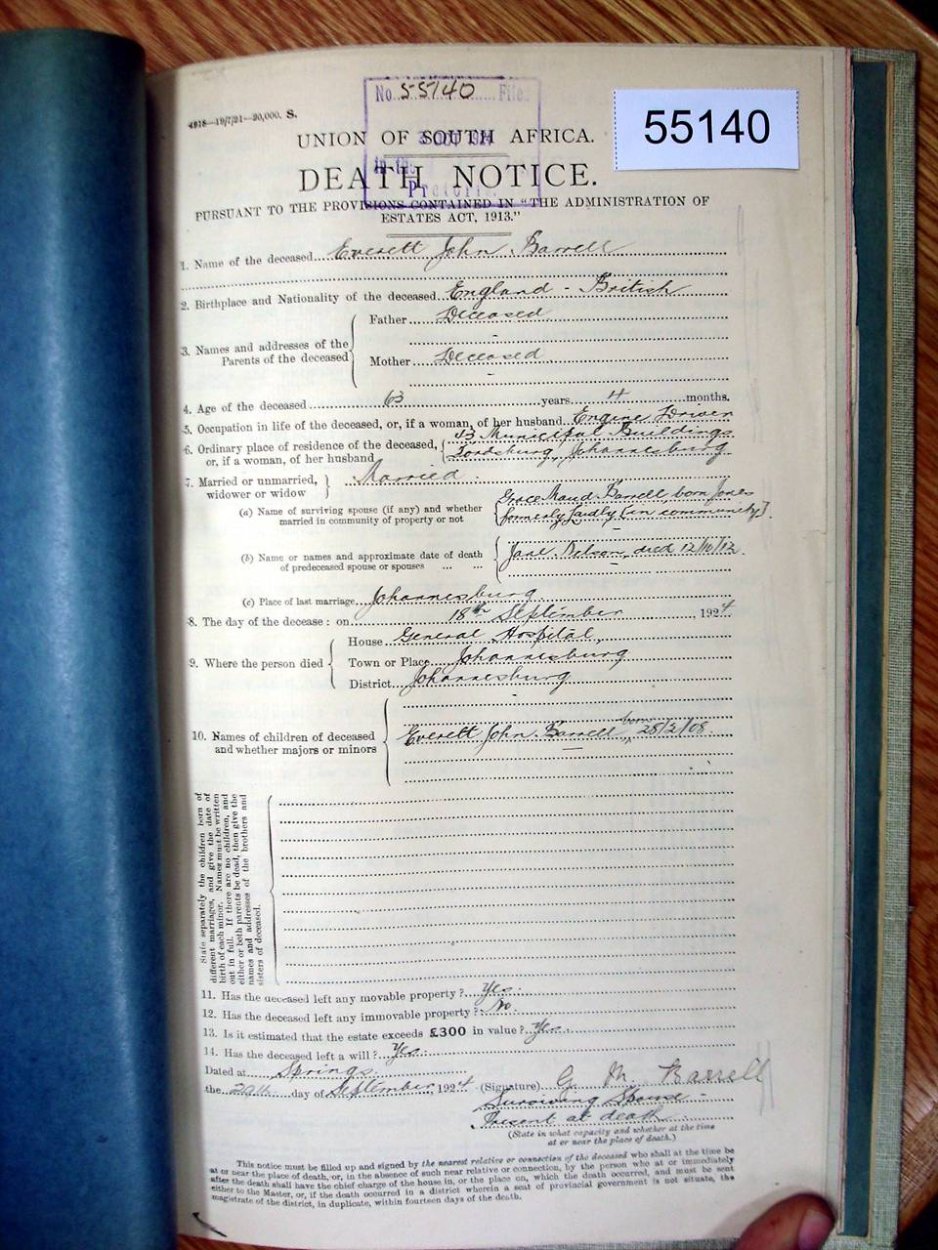 No. 55140 File
4818—19/7/21—20,000. S.
55140
UNION OF SOUTH AFRICA.
DEATH NOTICE.
PURSUANT TO THE PROVISIONS CONTAINED IN "THE ADMINISTRATION OF
ESTATES ACT, 1913."
1. Name of the deceased Everett John Barrell
2. Birthplace and Nationality of the deceased England - British
3. Names and addresses of the Parents of the deceased
Father Deceased
Mother Deceased
4. Age of the deceased 63 years 4 months.
5. Occupation in life of the deceased, or, if a woman, of her husband Engine Driver
6. Ordinary place of residence of the deceased, 43 Municipal Buildings
or, if a woman, of her husband Fordsburg, Johannesburg
7. Married or unmarried, widower or widow Married
(a) Name of surviving spouse (if any) and whether Grace Maud Barrell born Jones
married in community of property or not formerly (in community).
(b) Name or names and approximate date of death Jane died 12/10/12
of predeceased spouse or spouses ... ...
(c) Place of last marriage Johannesburg
8. The day of the decease: on 18th September, 1924
9. Where the person died
House General Hospital
Town or Place Johannesburg
District Johannesburg
10. Names of children of deceased Everett John Barrell born 28/2/08
and whether majors or minors
State separately the children born of
different marriages, and give the date of
birth of each minor. Names must be written
out in full. If there are no children, and
either or both parents be dead, then give the
names and addresses of the brothers and
sisters of deceased.
11. Has the deceased left any movable property? Yes.
12. Has the deceased left any immovable property? No.
13. Is it estimated that the estate exceeds £300 in value? Yes.
14. Has the deceased left a will? Yes.
Dated at Springs
the 29th day of September, 1924 (Signature) G. M. Barrell
Surviving Spouse -
Present at death
(State in what capacity and whether at the time
at or near the place of death.)
This notice must be filled up and signed by the nearest relative or connection of the deceased who shall at the time be
at or near the place of death, or, in the absence of such near relative or connection, by the person who at or immediately
after the death shall have the chief charge of the house in, or the place on, which the death occurred, and must be sent
either to the Master, or, if the death occurred in a district wherein a seat of provincial government is not situate, the
magistrate of the district, in duplicate, within fourteen days of the death.